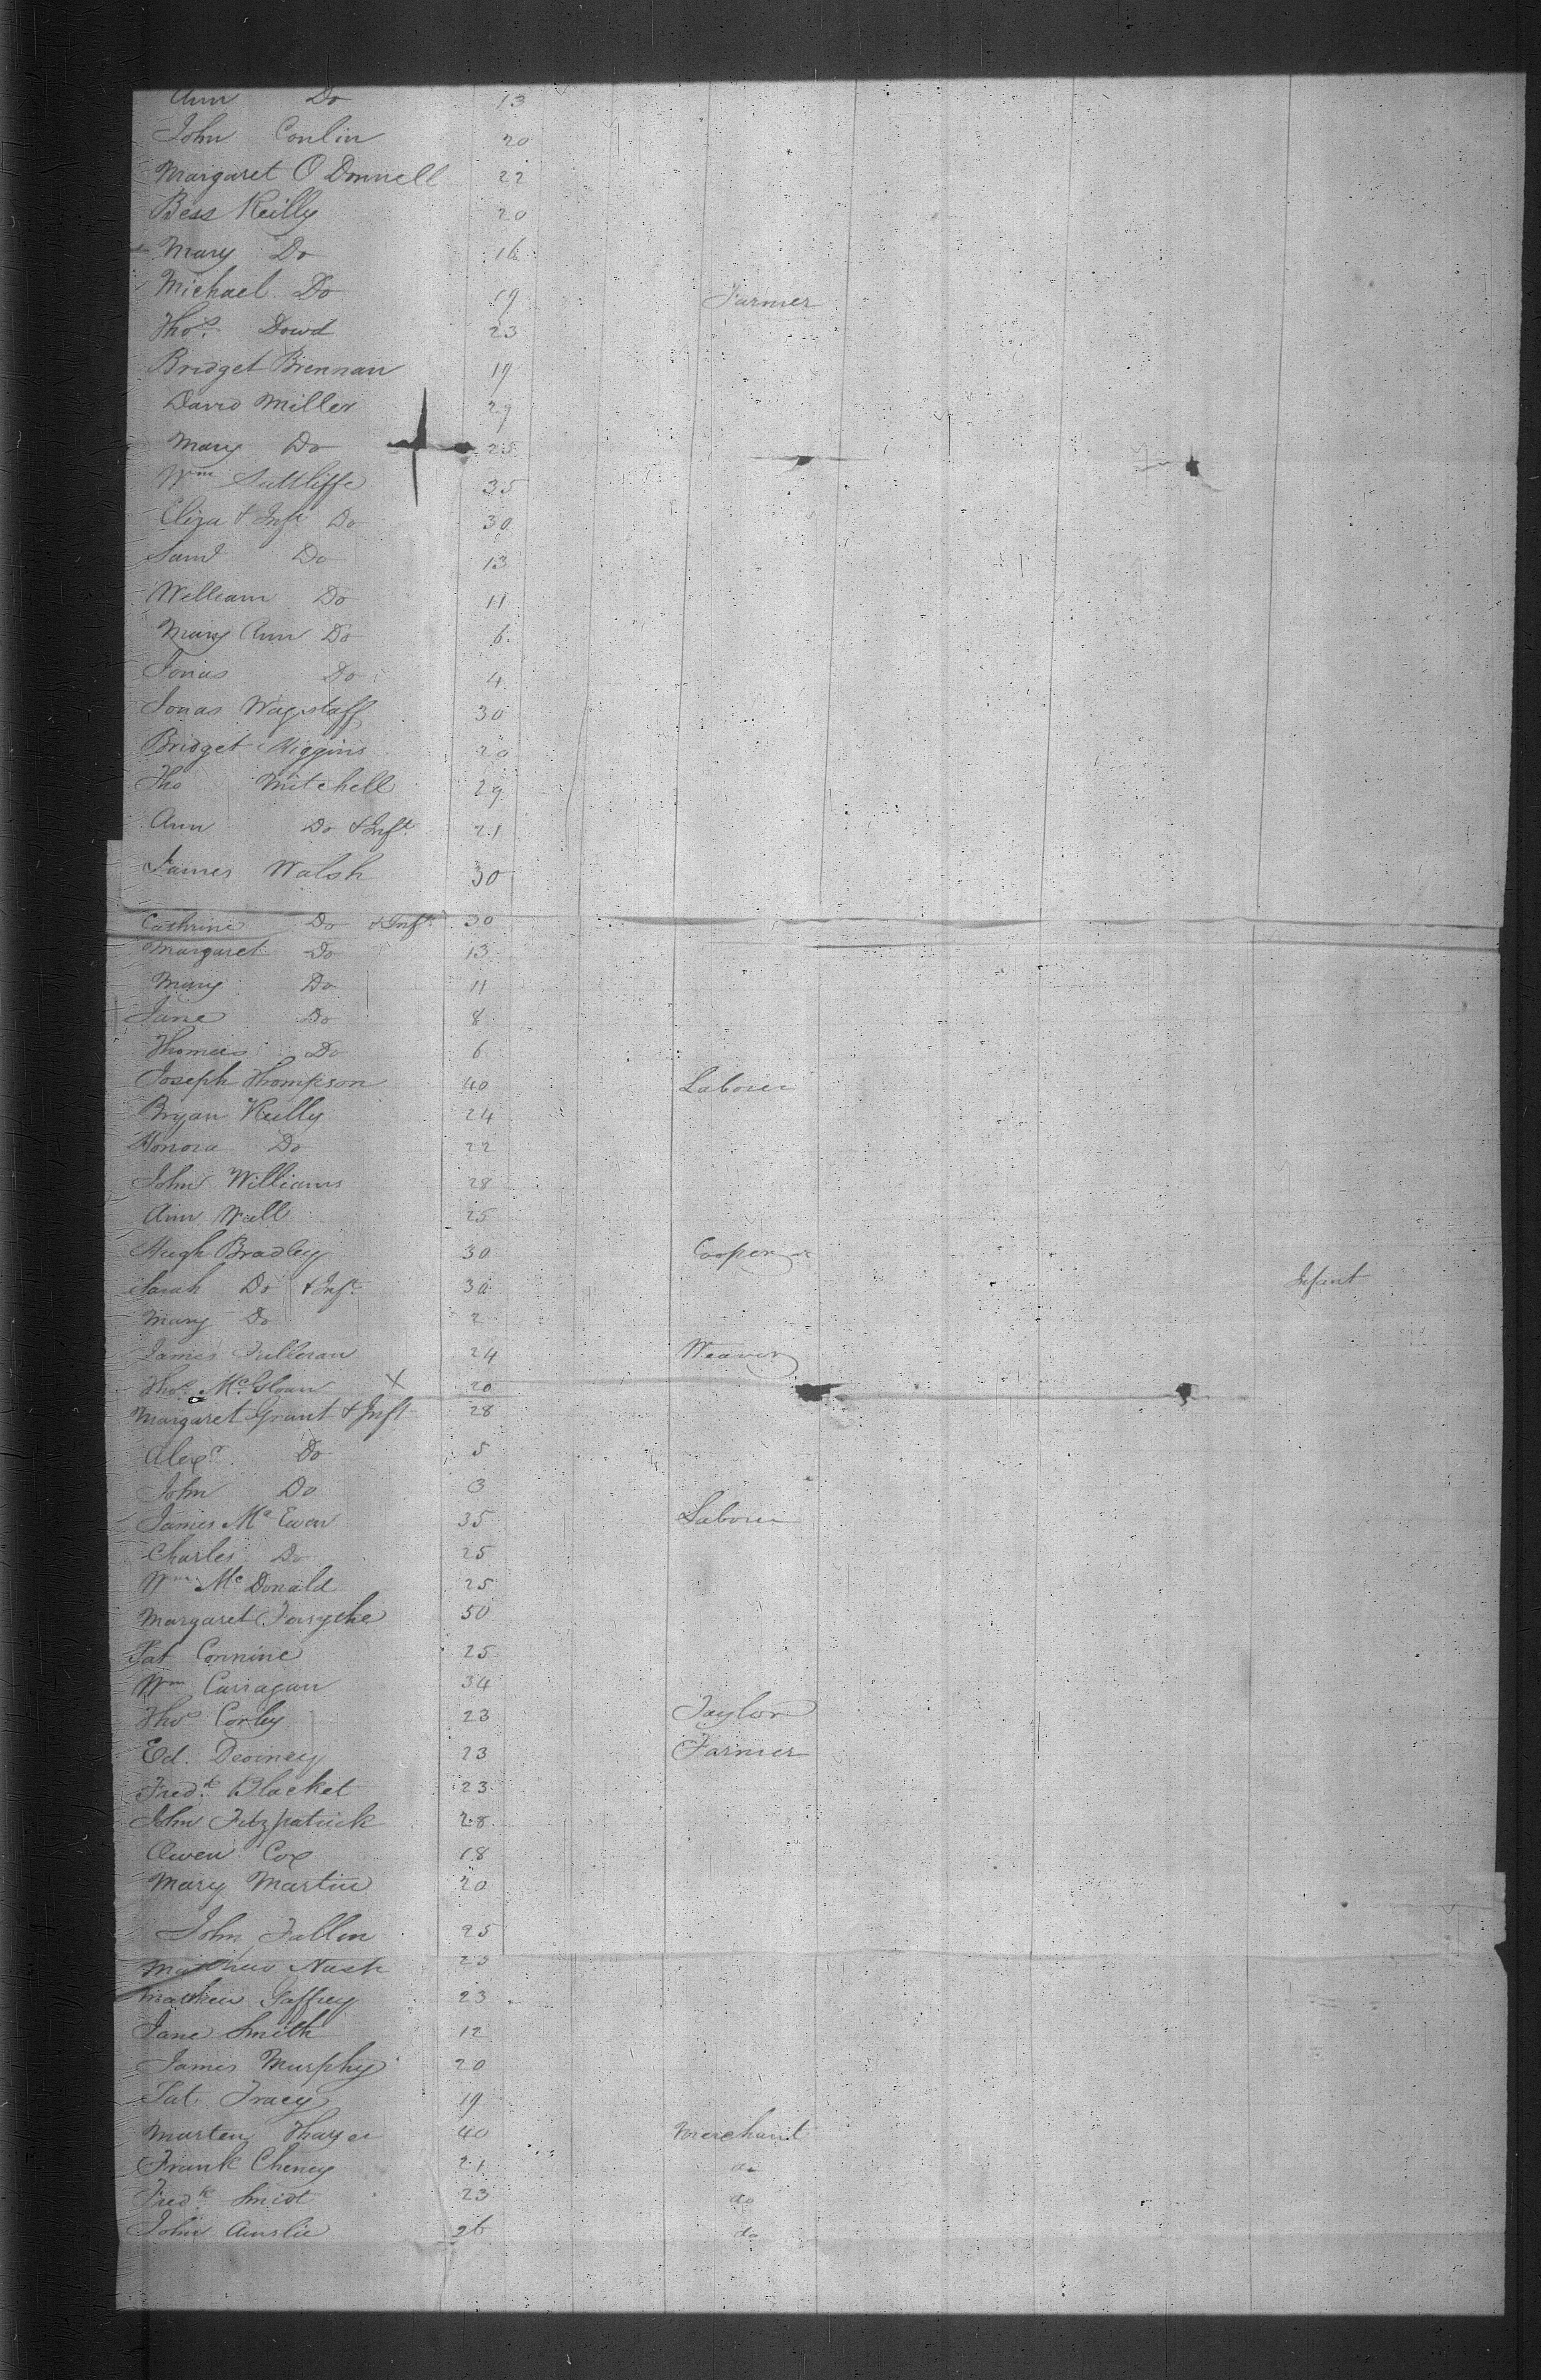 Ann Do 13
John Conlin 20
Margaret O Donnell 22
Bess Reilly 20
Mary Do 16
Michael Do 19 Farmer
Thos. Dowd 23
Bridget Brennan 19
David Miller 29
Mary Do 25
Wm Suttliffe 35
Eliza & Inft Do 30
Saml Do 13
William Do 11
Mary Ann Do 6
Jonas Do 4
Jonas Wagstaff 30
Bridget Higgins 20
Tho Mitchell 29
Ann Do & Inft. 21
James Walsh 30
Cathrine Do & Inft 30
Margaret Do 13
Mary Do 11
Jane Do 8
Thomas Do 6
Joseph Thompson 40 Laborer
Bryan 24
Honora Do 22
John Williams 28
Ann Wall 25
Hugh Bradley 30 Cooper
Sarah Do & Inft. 30 Infant
Mary Do 2
James 24 Weaver
Thos. McGloan X 20
Margaret Grant & Inft 28
Alexr. Do 5
John Do 3
James Mc Ewen 35 Laborer
Charles Do 25
Wm Mc Donald 25
Margaret Forsythe 50
Pat Connine 25
Wm Carragan 34
Thos Corley 23 Taylor
Ed. Deviney 23 Farmer
Fredk. Blacket 23
John Fitzpatrick 28
Owen Cox 18
Mary Martin 20
John Fallon 25
Mathew Nash 23
Mathew Gaffrey 23
Jane Smith 12
James Murphy 20
Pat Tracy 19
Marten Thayer 40 Merchant
Frank Cheney 21 do
Fredk. Smidt 23 do
John Ainslie 26 do